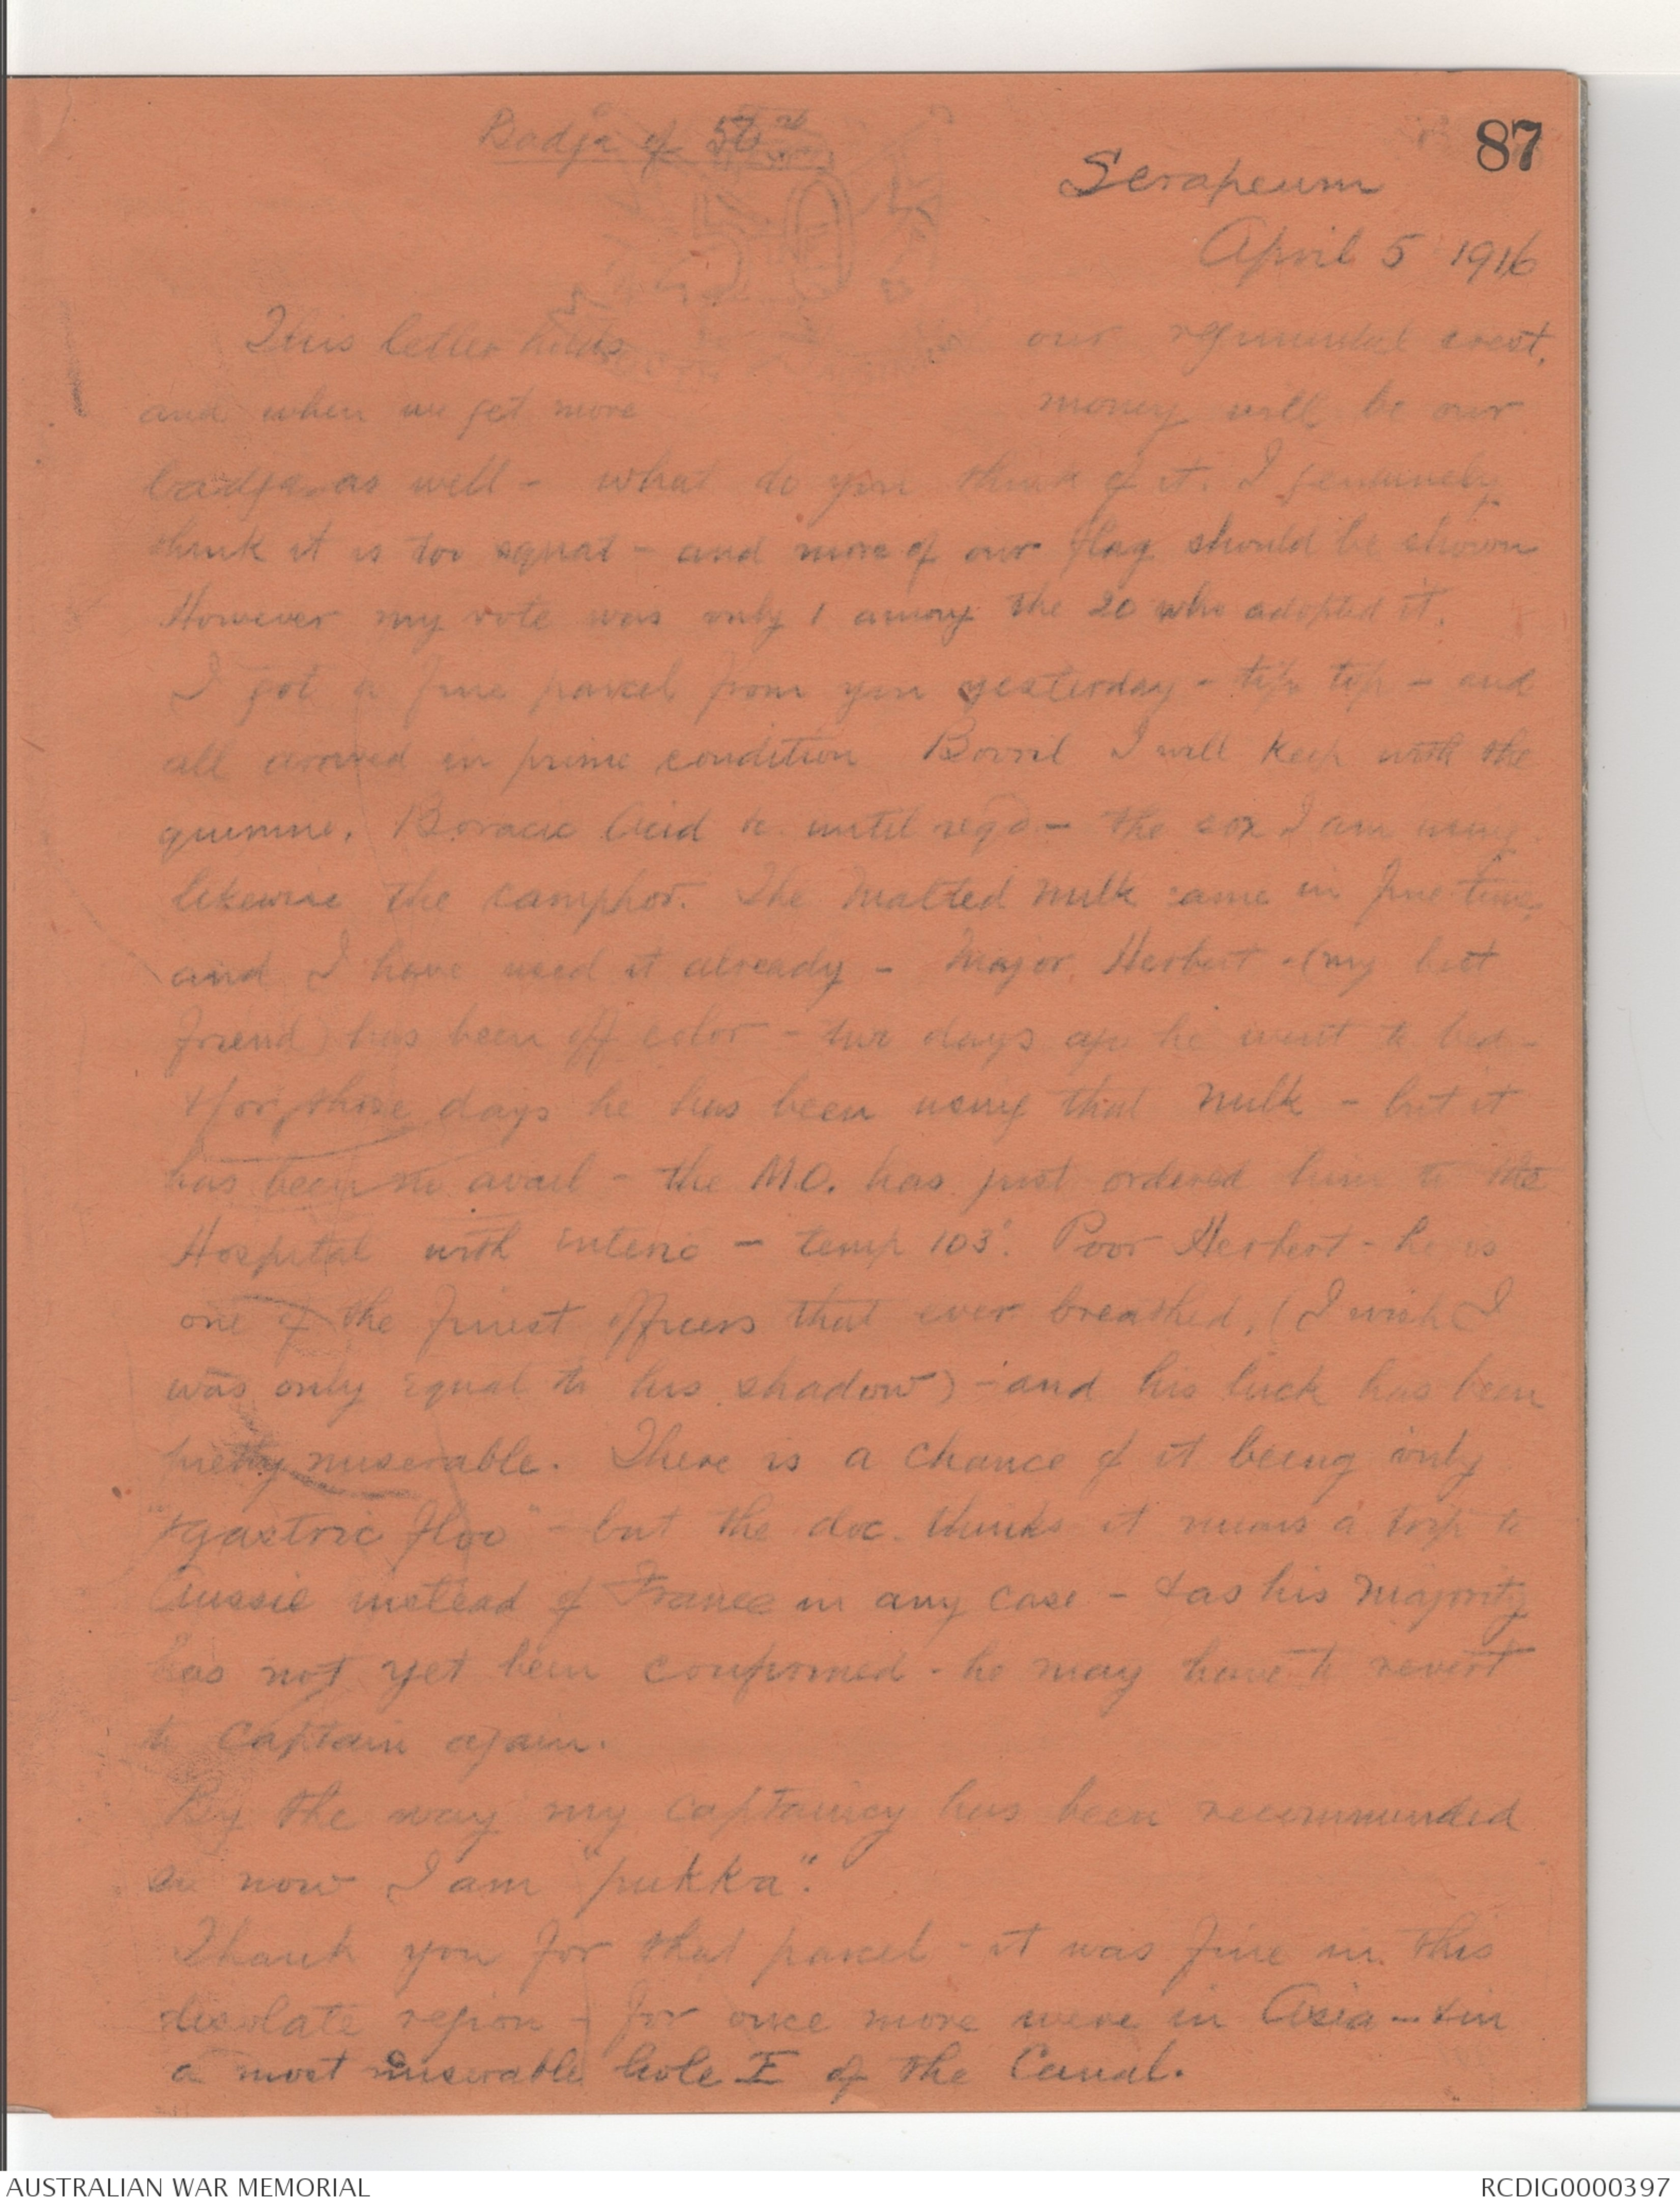 Badge of 50th
87
Serapeum
April 5 1916
50
This letter holds our regimental crest,
and when we get more money will be our
badge as well - what do you think of it. I genuinely
think it is too squat - and more of our flag should be shown
However my vote was only 1 among the 20 who adopted it.
I got a fine parcel from you yesterday - tip top - and
all arrived in prime condition Bovril I will keep with the
quinine, Boracic Acid &c until reqd - the sox I am using
likewise the camphor. The Malted Milk came in fine time,
and I have used it already - Major Herbert - (my best
friend) has been off color - two days ago he went to bed -
& for three days he has been using that Milk - but it
has been no avail - the M.O. has just ordered him to the
Hospital with enteric - temp 103°. Poor Herbert - he is
one of the finest officers that ever breathed, (I wish I
was only equal to his shadow) - and his luck has been
pretty miserable. There is a chance of it being only
"gastric floo" - but the doc. thinks it means a trip to
Aussie instead of France in any case - & as his majority
has not yet been confirmed - he may have to revert
to Captain again.
By the way my Captaincy has been recommended
so now I am "pukka".
Thank you for that parcel - it was fine in this
desolate region - for once more were in Asia - & in
a most miserable hole E of the Canal.
AUSTRALIAN WAR MEMORIAL
RCDIG0000397